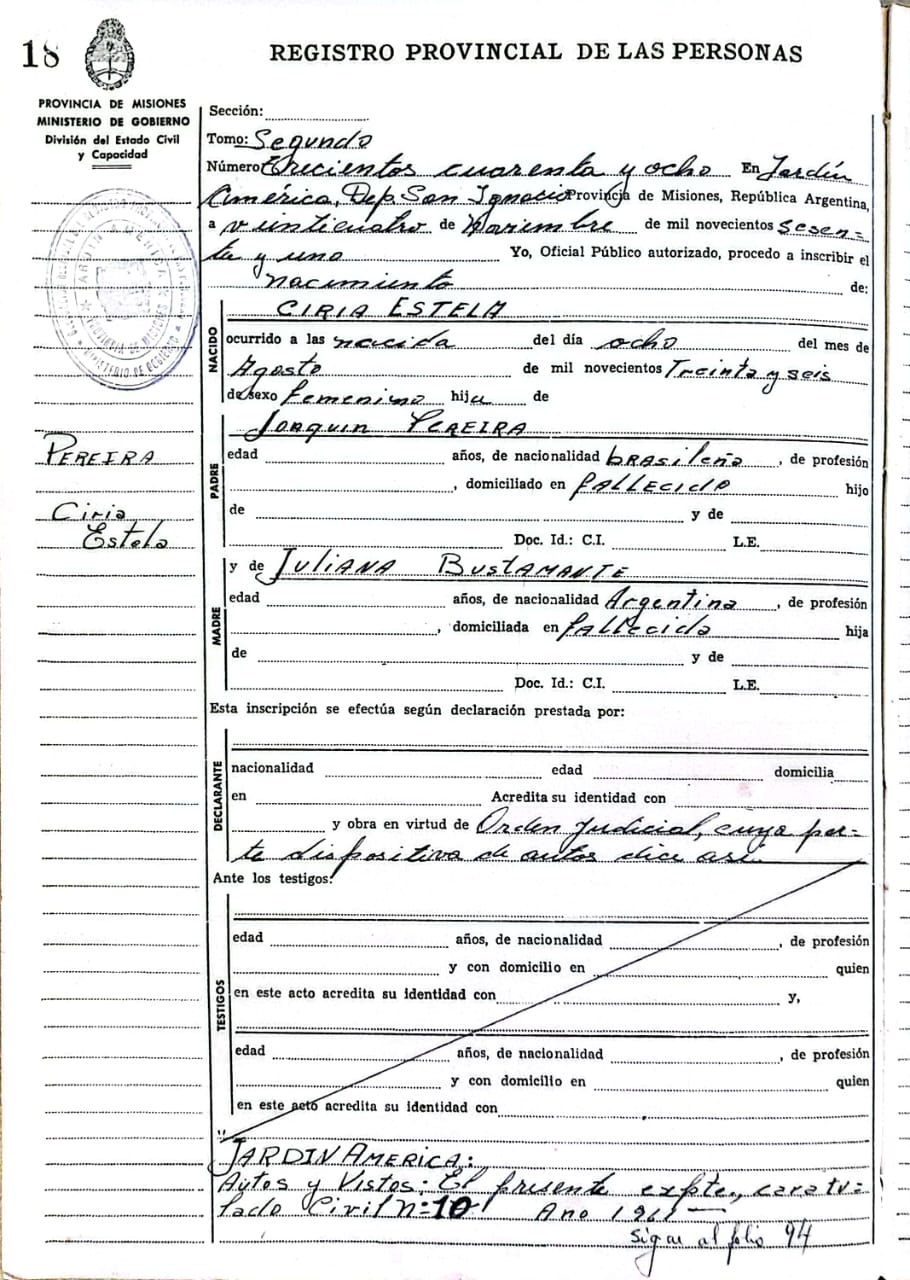 18
REGISTRO PROVINCIAL DE LAS PERSONAS
PROVINCIA DE MISIONES
MINISTERIO DE GOBIERNO
División del Estado Civil
y Capacidad
Sección:
Tomo: Segundo
Número Trecientos cuarenta y ocho En Jardín
América, Dep. San Ignacio Provincia de Misiones, República Argentina,
a veinticuatro de Noviembre de mil novecientos sesen=
ta y uno Yo, Oficial Público autorizado, procedo a inscribir el
nacimiento de:
NACIDO
CIRIA ESTELA
ocurrido a las nacida del día ocho del mes de
Agosto de mil novecientos Treinta y seis
de sexo femenino hija de
PADRE
Joaquin PEREIRA
edad años, de nacionalidad brasileña, de profesión
, domiciliado en fallecido hijo
de y de
Doc. Id.: C.I. L.E.
PEREIRA
Ciria
Estela
MADRE
y de JULIANA BUSTAMANTE
edad años, de nacionalidad Argentina, de profesión
, domiciliada en fallecida hija
de y de
Doc. Id.: C.I. L.E.
Esta inscripción se efectúa según declaración prestada por:
DECLARANTE
nacionalidad edad domicilia
en Acredita su identidad con
y obra en virtud de Orden judicial, cuya par=
te dispositiva de autos dice así
Ante los testigos:
TESTIGOS
edad años, de nacionalidad , de profesión
y con domicilio en quien
en este acto acredita su identidad con y,
edad años, de nacionalidad , de profesión
y con domicilio en quien
en este acto acredita su identidad con
"JARDIN AMERICA:
Autos y Vistos: El presente expte., caratu=
lado Civil Nº 10 Año 1961
sigue al folio 94